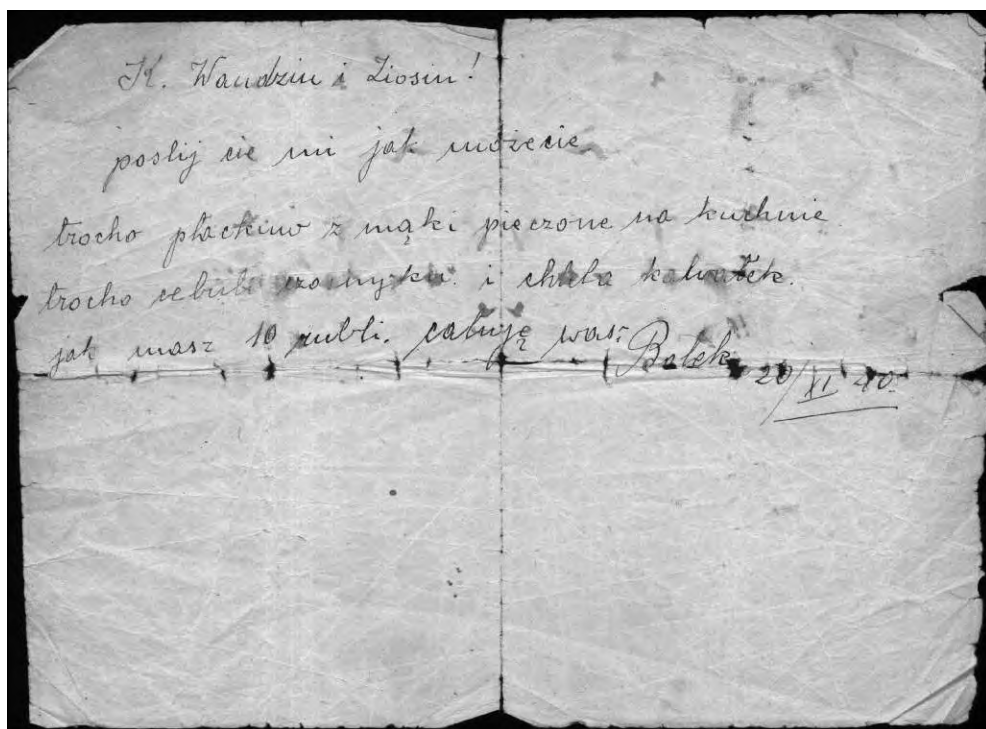 K. Wandziu i Ziosiu!
poslij cie mi jak możecie
trocho płackuw z mąki pieczone na kuchnie
trocho cebuli czosnyku i chleba kawałek.
jak masz 10 rubli. całuję was.
Bolek
20/XI 40